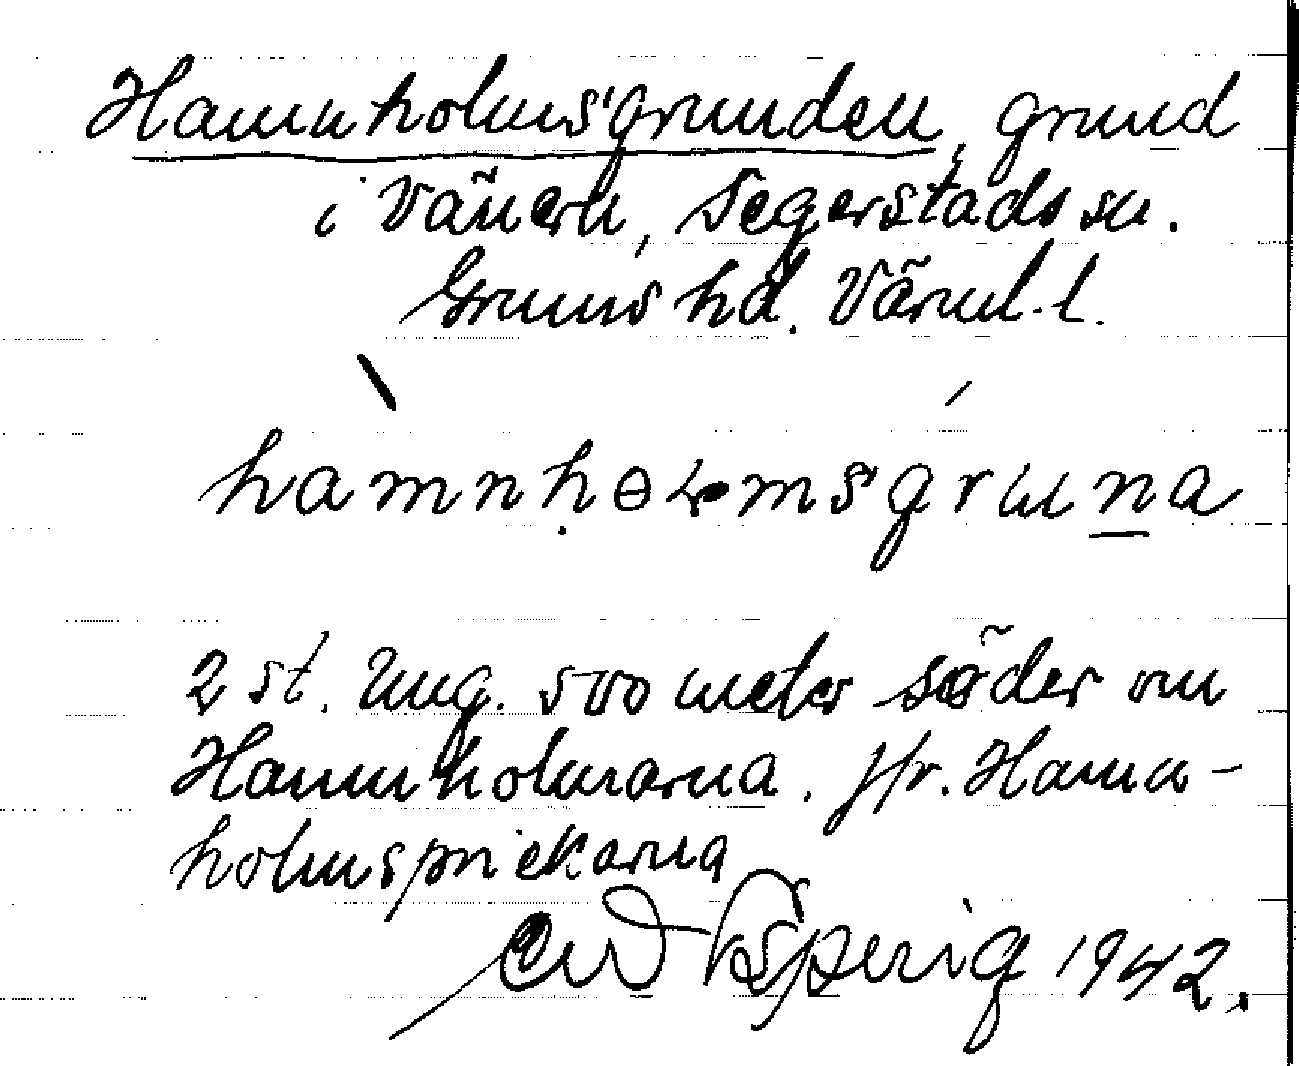 Hamnholmsgrunden, grund
i Vänern, Segerstads sn.
Grums hd. Värml. l.
hamnhɵLmsgruna
2 st. Ung. 500 meter söder om
Hamnholmarna. Jfr. Hamn-
holmsprickarna
1942.